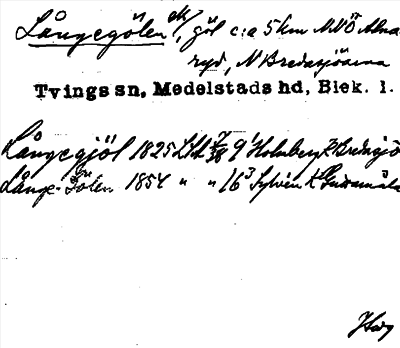 Långegölen ek, göl c:a 5 km NNÖ Alna-
ryd, N Bredasjöarna
Tvings sn, Medelstads hd, Blek. l.
Långegjöl 1825 LSA 9¹ Holmberg K Bredsjö
Långe-Gölen 1854 " " 16³ Sylvén K